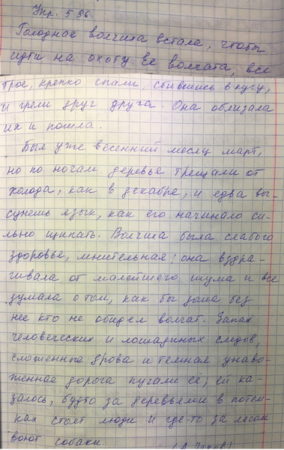 Упр. 596
Голодная волчиха встала, чтобы
идти на охоту. Ее волчата, все
трое, крепко спали, сбившись в кучу,
и грели друг друга. Она облизала
их и пошла.
Был уже весенний месяц март,
но по ночам деревья трещали от
холода, как в декабре, и едва вы-
сунешь язык, как его начинало си-
льно щипать. Волчиха была слабого
здоровья, мнительная; она вздра-
гивала от малейшего шума и все
думала о том, как бы дома без
нее кто не обидел волчат. Запах
человеческих и лошадиных следов,
сложенные дрова и темная унаво-
женная дорога пугали её; ей ка-
залось, будто за деревьями в потем-
ках стоят люди и где-то за лесом
воют собаки.
(А. Чехов)